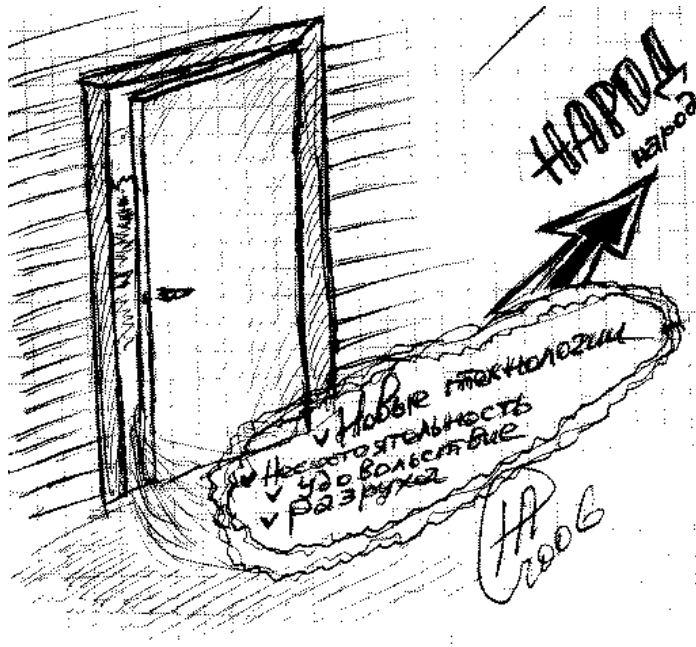 НАРОД
народ
Новые технологии
Несостоятельность
удовольствие
разруха
НА
2006